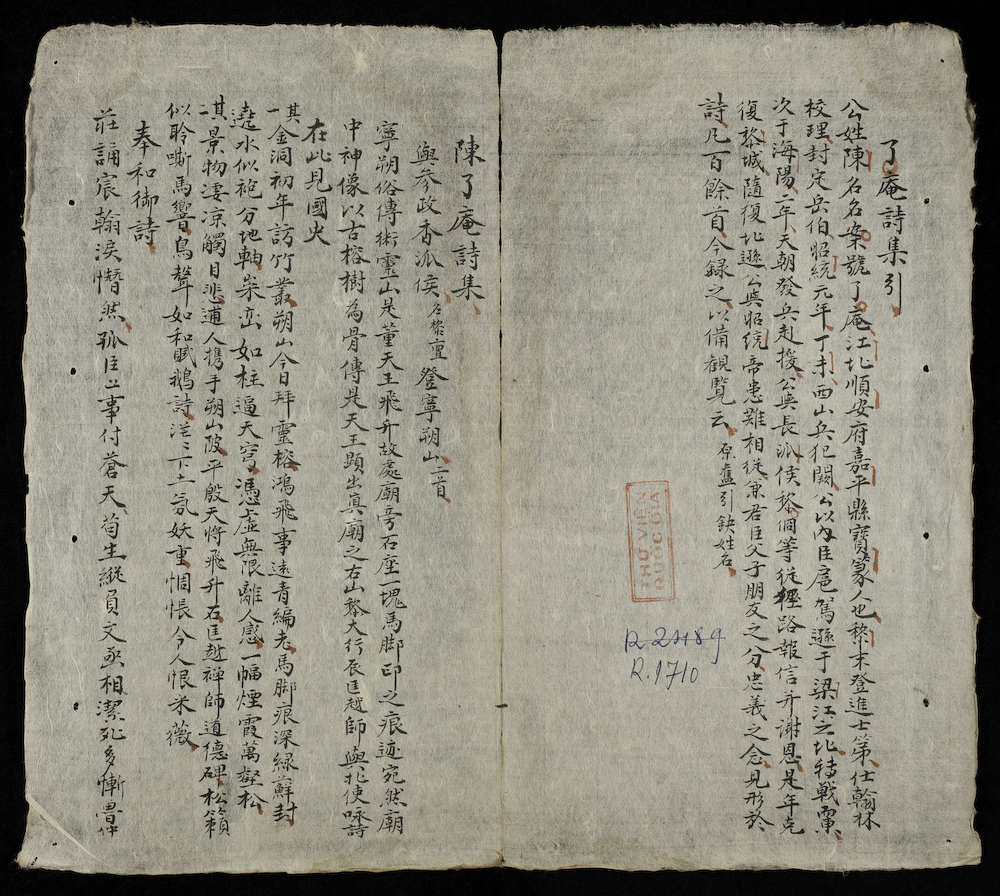 了庵詩集引
公姓陳名名案號了庵江北順安府嘉平縣寶篆人也黎末登進士第仕翰林
校理封定岳伯昭統元年丁未西山兵犯闕公以內臣扈駕遜于梁江之北轉戰
次于海陽二年天朝發兵赴援公與長派侯黎侗等從徑路報信并謝恩是年克
復黎城隨復北遜公與昭統帝患難相從兼君臣父子朋友之分忠義之念見形於
詩凡百餘首今録之以備觀覽云 原舊引缺姓名
THƯ VIỆN
QUỐC GIA
R 2489
R.1710
陳了庵詩集
與參政香派侯名黎亶登寧朔山二首
寧朔俗傳衛靈山是董天王飛升故處廟旁石座一塊馬脚印之痕迹宛然廟
中神像以古榕樹為骨傳是天王顯出真廟之右山黎大行辰匡越師與北使咏詩
在此見國史
其一金洞初年訪竹叢朔山今日拜靈榕鴻飛事遠青編老馬脚痕深綠蘚封
遶水似袍分地軸岽峦如柱逼天穹憑虛無限離人感一幅煙霞萬壑松
其二景物凄凉觸目悲逋人携手朔山陂平殷天將飛升石匡越禅師道德碑松籟
似聆嘶馬響鳥聲如和賦鵝詩茫々下土氛妖重惆悵令人恨采薇
奉和御詩
莊誦宸翰淚憯然孤臣心事付蒼天苟生縱負文丞相潔死多慚